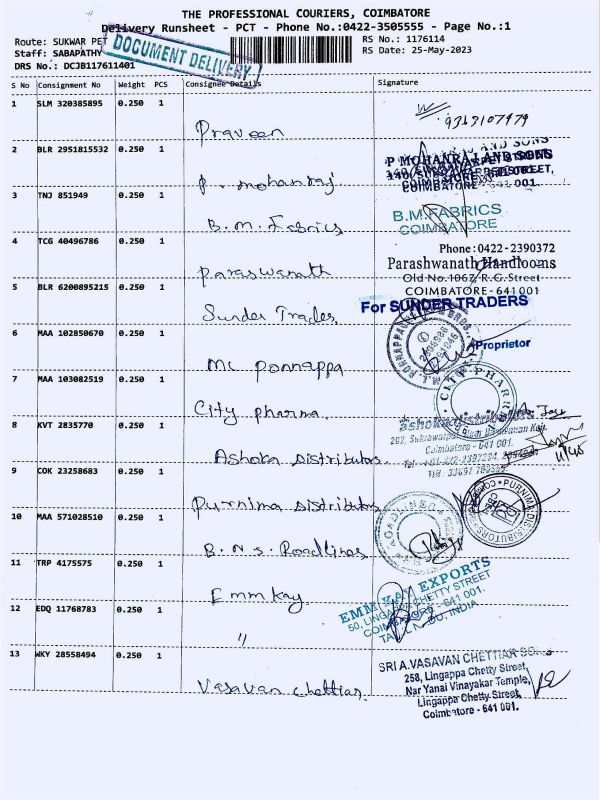 THE PROFESSIONAL COURIERS, COIMBATORE
Delivery Runsheet - PCT - Phone No.:0422-3505555 - Page No.:1
Route: SUKWAR PET
RS No.: 1176114
Staff: SABAPATHY
RS Date: 25-May-2023
DRS No.: DCJB117611401
DOCUMENT DELIVERY
S No Consignment No Weight PCS Consignee Details Signature
1 SLM 320385895 0.250 1
Praveen
9363107979
2 BLR 2951815532 0.250 1
P. mohanraj
P MOHANRAJ AND SONS
COIMBATORE - 641 001.
3 TNJ 851949 0.250 1
B.M. Fabrics
B.M.FABRICS
COIMBATORE
4 TCG 40496786 0.250 1
Paraswanath
Phone:0422-2390372
Parashwanath Handlooms
Old No.106/ R.G.Street
COIMBATORE-641001
5 BLR 6200895215 0.250 1
Sunder Trades
For SUNDER TRADERS
Proprietor
6 MAA 102850670 0.250 1
Mc Ponnappa
7 MAA 103082519 0.250 1
City pharma
CITY PHARMA
8 KVT 2835770 0.250 1
Ashoka Distributors
ashoka distributors
Coimbatore - 641 001.
9 COK 23258683 0.250 1
Purnima Distributors
PURNIMA DISTRIBUTORS
10 MAA 571028510 0.250 1
B.N.S. Roadlines
11 TRP 4175575 0.250 1
Emmkay
EMM KAY EXPORTS
50, LINGAPPA CHETTY STREET
COIMBATORE - 641 001.
TAMIL NADU, INDIA
12 EDQ 11768783 0.250 1
"
13 WKY 28558494 0.250 1
Vasavan Chettiar
SRI A.VASAVAN CHETTIAR
258, Lingappa Chetty Street,
Nar Yanai Vinayakar Temple,
Lingappa Chetty Street,
Coimbatore - 641 001.